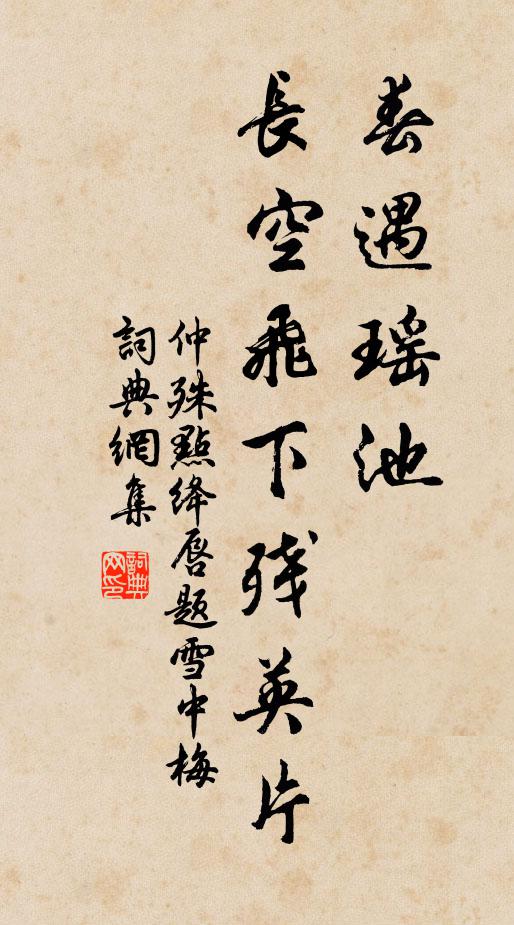 春遇瑶池
長空飛下残英片
仲殊點绛唇題雪中梅
詞典網集
詞典網印